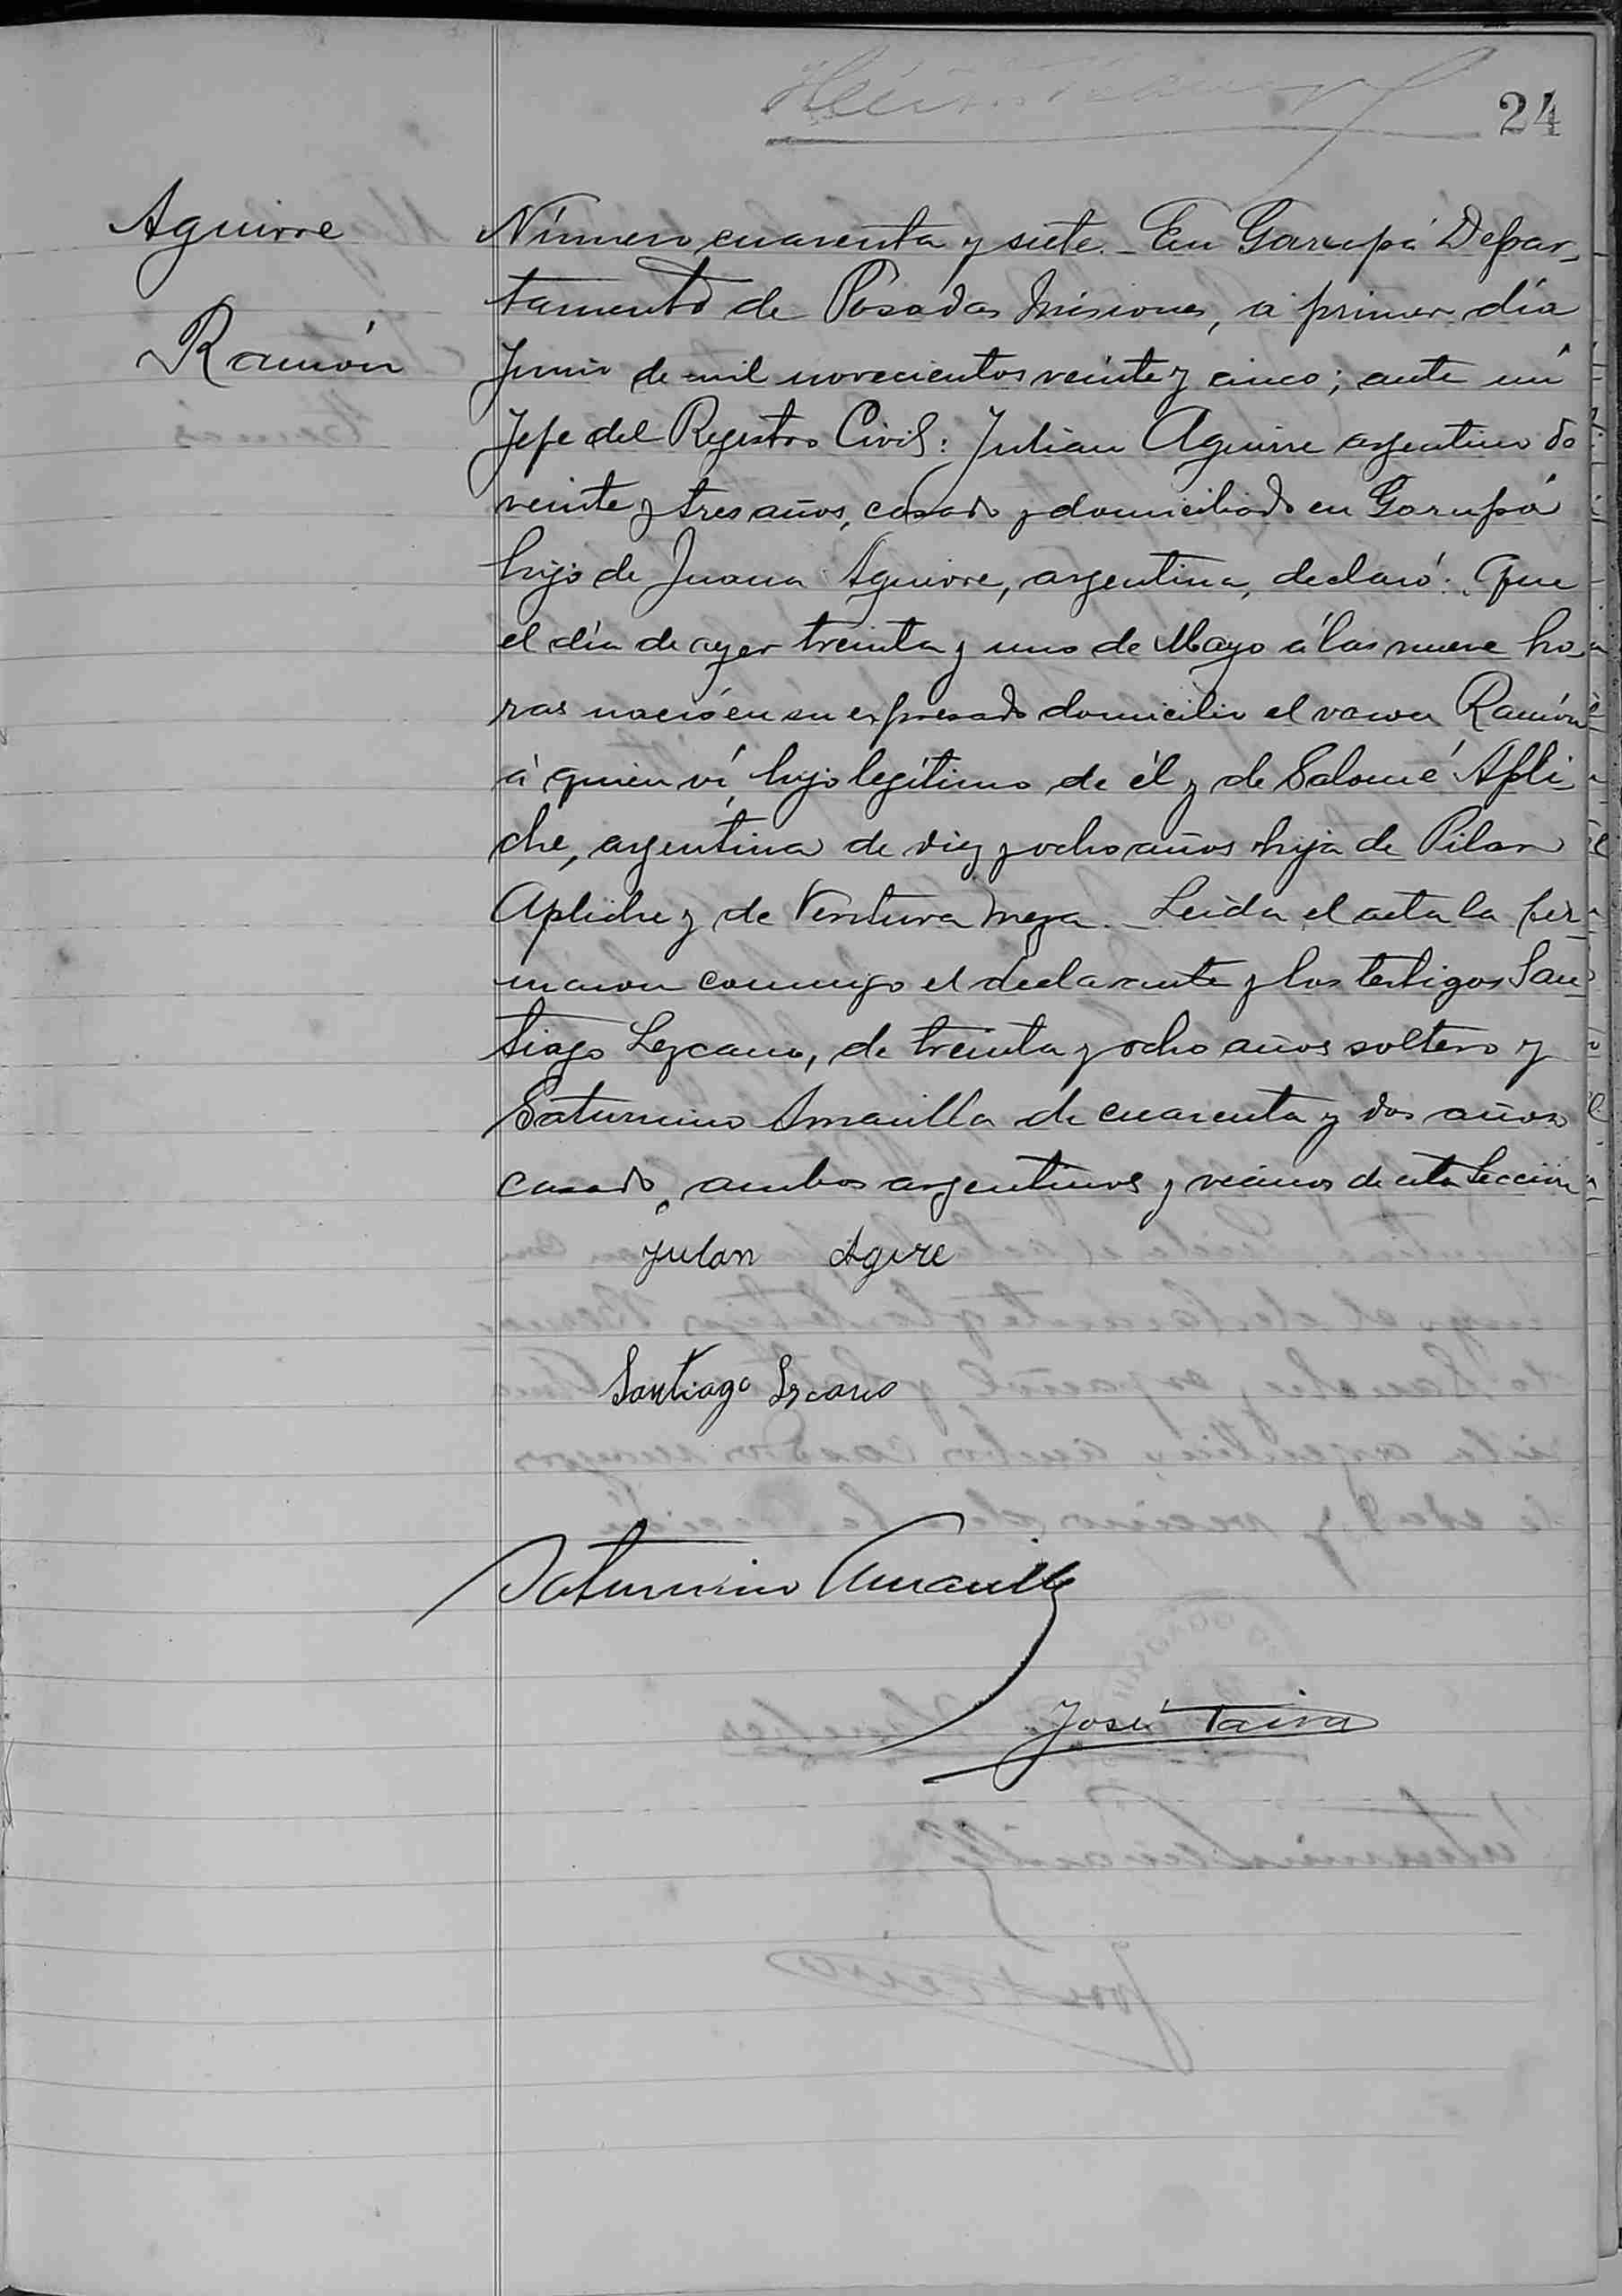 24
Aguirre
Ramón
Número cuarenta y siete. - En Garupá Depar-
tamento de Posadas Misiones, a primer día
Junio de mil novecientos veinte y cinco; ante mí
Jefe del Registro Civil: Julian Aguirre argentino de
veinte y tres años, casado y domiciliado en Garupá
hijo de Juana Aguirre, argentina, declaró: Que
el día de ayer treinta y uno de Mayo á las nueve ho-
ras nació en su expresado domicilio el varon Ramón
á quien ví, hijo legítimo de él y de Salomé Apli-
che, argentina de diez y ocho años hija de Pilar
Apliche y de Ventura Meza. - Leida el acta la fir-
maron conmigo el declarante y los testigos San-
tiago Lezcano, de treinta y ocho años soltero y
Saturnino Amarilla de cuarenta y dos años
casado, ambos argentinos y vecinos de esta Sección
Julan Agire
Santiago Lzcano
Saturnino Amarilla
José Taira